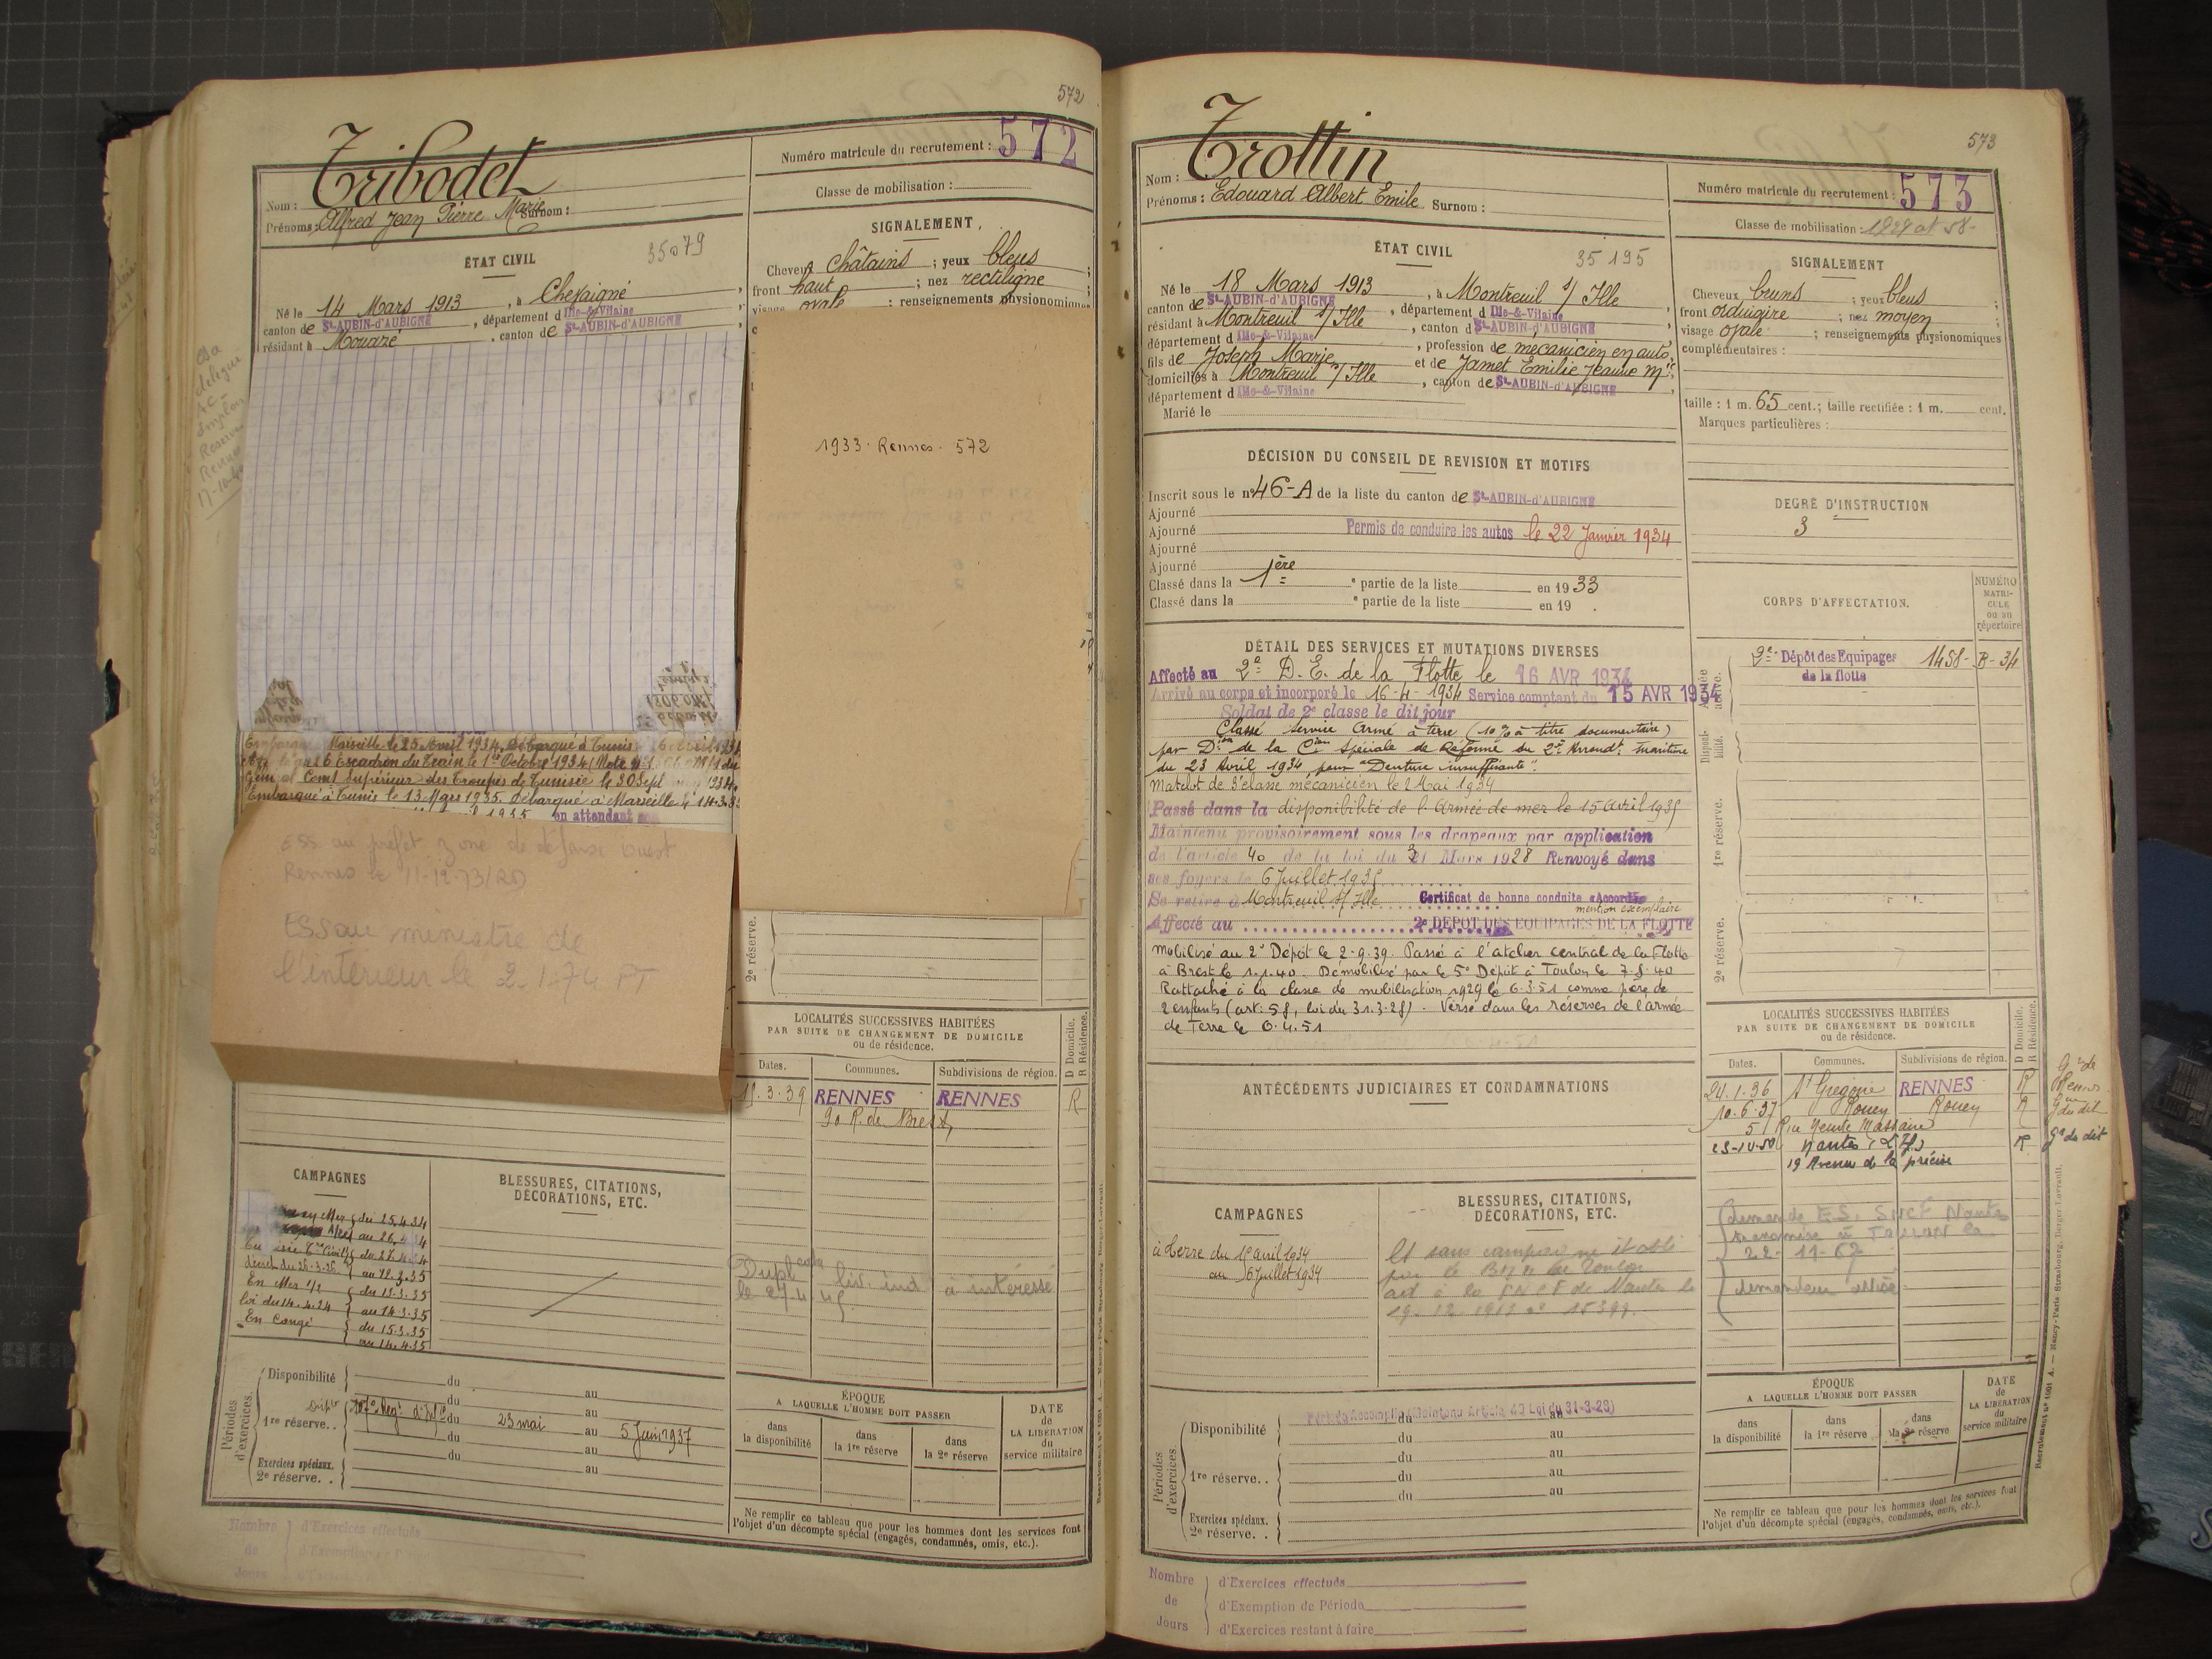 572
Tribodet
Nom :
Prénoms : Alfred Jean Pierre Marie Surnom :
Numéro matricule du recrutement : 572
Classe de mobilisation :
ÉTAT CIVIL
35079
Né le 14 Mars 1913, à Chevaigné
canton de St-AUBIN-d'AUBIGNÉ, département d Ille-&-Vilaine
résidant à Mouazé, canton de St-AUBIN-d'AUBIGNÉ
SIGNALEMENT
Cheveux Châtains ; yeux bleus ;
front haut ; nez rectiligne ;
visage ovale ; renseignements physionomiques
1933 - Rennes - 572
Marseille le 25 Avril 1934. Débarqué à Tunis
6 Escadron du Train le 1er Octobre 1934
Comt Supérieur des Troupes de Tunisie le 30 Sept 1934
Embarqué à Tunis le 13 Mars 1935. Débarqué à Marseille le 14.3.35
1935 en attendant
ESS au préfet zone de défense ouest
Rennes le 11-12-73/RD
ESS au ministre de
l'intérieur le 2.1.74 PT
2e réserve.
LOCALITÉS SUCCESSIVES HABITÉES
PAR SUITE DE CHANGEMENT DE DOMICILE
ou de résidence.
D Domicile.
R Résidence.
Dates. Communes. Subdivisions de région.
RENNES RENNES R
90 R. de Brest
CAMPAGNES
en Mer du 25.4.34
au 26.4.34
du 27.4.34
décret du 26-3-26 au 12.3.35
En Mer 1/2 du 13.3.35
loi du 14.4.24 au 14.3.35
En Congé du 15.3.35
au 14.4.35
BLESSURES, CITATIONS,
DÉCORATIONS, ETC.
liv. ind à intéressé
Périodes d'exercices.
Disponibilité du au
1re réserve. . du 23 mai au 5 Juin 1937
du au
Exercices spéciaux.
2e réserve. . du au
ÉPOQUE
A LAQUELLE L'HOMME DOIT PASSER
dans la disponibilité
dans la 1re réserve
dans la 2e réserve
DATE de LA LIBÉRATION du service militaire
Ne remplir ce tableau que pour les hommes dont les services font
l'objet d'un décompte spécial (engagés, condamnés, omis, etc.).
Nombre de Jours
d'Exercices effectués
573
Trottin
Nom :
Prénoms : Edouard Albert Emile Surnom :
Numéro matricule du recrutement : 573
Classe de mobilisation : 1929 art 58-
ÉTAT CIVIL
35195
Né le 18 Mars 1913, à Montreuil s/ Ille
canton de St-AUBIN-d'AUBIGNÉ, département d Ille-&-Vilaine
résidant à Montreuil s/ Ille, canton d St-AUBIN-d'AUBIGNÉ
département d Ille-&-Vilaine, profession de mécanicien en auto,
fils de Joseph Marie et de Jamet Emilie Jeanne Mie,
domiciliés à Montreuil s/ Ille, canton de St-AUBIN-d'AUBIGNÉ,
département d Ille-&-Vilaine
Marié le
SIGNALEMENT
Cheveux bruns ; yeux bleus ;
front ordinaire ; nez moyen ;
visage ovale ; renseignements physionomiques
complémentaires :
taille : 1 m. 65 cent.; taille rectifiée : 1 m. cent.
Marques particulières :
DÉCISION DU CONSEIL DE REVISION ET MOTIFS
Inscrit sous le n° 46-A de la liste du canton de St-AUBIN-d'AUBIGNÉ
Ajourné
Ajourné Permis de conduire les autos le 22 Janvier 1934
Ajourné
Ajourné
Classé dans la 1ère e partie de la liste en 1933
Classé dans la e partie de la liste en 19 .
DEGRÉ D'INSTRUCTION
3
CORPS D'AFFECTATION.
NUMÉRO MATRICULE ou au répertoire
2e Dépôt des Equipages de la flotte 1458- B-34
Armée active.
Disponibilité.
1re réserve.
2e réserve.
DÉTAIL DES SERVICES ET MUTATIONS DIVERSES
Affecté au 2e D. E. de la Flotte le 16 AVR 1934
Arrivé au corps et incorporé le 16-4-1934 Service comptant du 15 AVR 1934
Soldat de 2e classe le dit jour
Classé service Armé à terre (10% à titre documentaire)
par Don de la Cion Spéciale de Réforme du 2e Arrondt maritime
du 23 Avril 1934, pour "Denture insuffisante".
Matelot de 3e classe mécanicien le 2 Mai 1934
Passé dans la disponibilité de l'Armée de mer le 15 avril 1935
Maintenu provisoirement sous les drapeaux par application
de l'article 40 de la loi du 31 Mars 1928 Renvoyé dans
ses foyers le 6 Juillet 1935
Se retire à Montreuil s/ Ille Certificat de bonne conduite "Accordé"
mention exemplaire
Affecté au 2e DEPOT DES EQUIPAGES DE LA FLOTTE
Mobilisé au 2e Dépôt le 2-9-39. Passé à l'atelier central de la Flotte
à Brest le 1.1.40. Démobilisé par le 5e Dépôt à Toulon le 7.8.40
Rattaché à la classe de mobilisation 1929 le 6.3.51 comme père de
2 enfants (art. 58, loi du 31.3.28). Versé dans les réserves de l'armée
de Terre le 6.4.51
ANTÉCÉDENTS JUDICIAIRES ET CONDAMNATIONS
LOCALITÉS SUCCESSIVES HABITÉES
PAR SUITE DE CHANGEMENT DE DOMICILE
ou de résidence.
D Domicile.
R Résidence.
Dates. Communes. Subdivisions de région.
24.1.36 St Grégoire RENNES R
10.6.37 Rouen Rouen R
Nantes R
19 Avenue de la
CAMPAGNES
à terre du 15 avril 1934
au 6 Juillet 1934
BLESSURES, CITATIONS,
DÉCORATIONS, ETC.
demande ES. SNCF Nantes
transmise à TOULON le
22-11-67
Périodes d'exercices.
Période Accomplie (Maintenu Article 40 Loi du 31-3-28)
Disponibilité du au
du au
1re réserve. . du au
du au
Exercices spéciaux.
2e réserve. .
ÉPOQUE
A LAQUELLE L'HOMME DOIT PASSER
dans la disponibilité
dans la 1re réserve
dans la 2e réserve
DATE de LA LIBÉRATION du service militaire
Ne remplir ce tableau que pour les hommes dont les services font
l'objet d'un décompte spécial (engagés, condamnés, omis, etc.).
Nombre de Jours
d'Exercices effectués
d'Exemption de Période
d'Exercices restant à faire